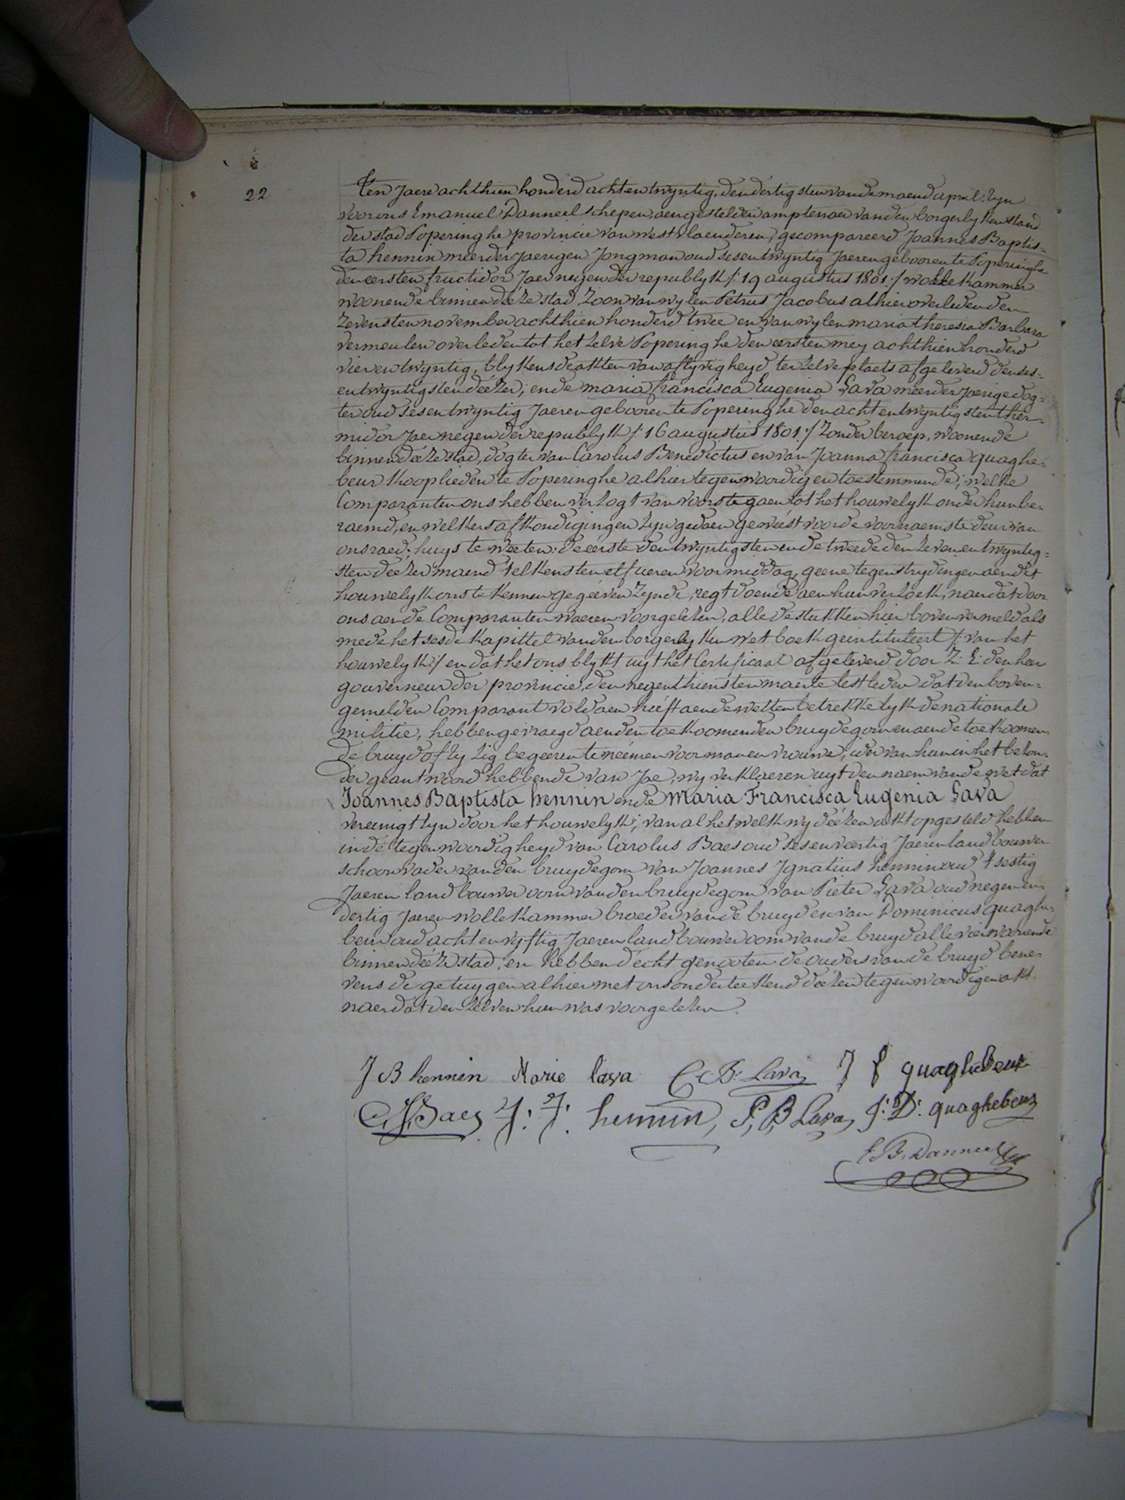 22
Ten Jaere achthien honderd achtentwyntig, den dertigsten van de maend april, zyn
voor ons Emanuel Danneel schepen, aengestelden amptenaer van den borgerlyken stand
der stad Poperinghe provincie van westvlaenderen, gecompareerd Joannes Baptis-
ta hennin meerderjaerigen Jongman oud sesentwyntig Jaeren gebooren te Poperinghe
den eersten fructidor Jaer negen der republyk /: 19 augustus 1801 :/ wolle kammer
woonende binnen deéze stad, Zoon van wylen Petrus Jacobus alhier overleden den
Zevensten november achthien honderd twee en van wylen maria theresia Barbara
vermeulen overleden tot het zelve Poperinghe den eersten mey achthien honderd
vierentwyntig, blykens de akten van aflyvigheyd ter zelve plaets afgeleverd den ses-
entwyntigsten deézer, ende maria francisca Eugenia Lava meerderjaerige dog-
ter oud sesentwyntig Jaeren gebooren te Poperinghe den achtentwyntigsten ther-
midor Jaer negen der republyk /: 16 augustus 1801 :/ zonder beroep, woonende
binnen deéze stad, dogter van Carolus Benedictus en van Joanna francisca quaghe-
beur kooplieden te Poperinghe alhier tegenwoordig en toestemmende; welke
Comparanten ons hebben verzogt van voorts te gaen tot het houwelyk onder hun be-
raemd, en welkers afkondigingen zyn gedaen geweést voor de voornaemste deur van
ons raed-huys te weeten: de eerste den twyntigsten en de tweede den zevenentwyntig-
sten deézer maend telkens ten elf ueren voormiddag, geene tegenstrydingen aen dit
houwelyk ons te kennen gegeéven zynde, regt doende aen hun verzoek, naer dat door
ons aen de Comparanten waeren voorgelezen, alle de stukken hier boven vermeld als
mede het sesde kapittel van den borgerlyken wet boek geintituleert /: van het
houwelyk :/ en dat het ons blykt uyt het Certificaet afgeleverd door Z: E: den heer
gouverneur der provincie, den negenthiensten maerte lestleden dat den boven-
gemelden Comparant voldaen heeft aen de wetten betrekkelyk de nationale
militie, hebben gevraegd aen den toekoomenden bruydegom en aen de toekoomen-
de bruyd of zy zig begeeren te neémen voor man en vrouwe, elk van hun in het bezon-
der geantwoord hebbende van Jae, wy verklaeren uyt den naem van de wet dat
Joannes Baptista hennin ende Maria Francisca Eugenia Lava
vereenigt zyn door het houwelyk; van al het welk wy deézen akt opgesteld hebben
in de tegenwoordigheyd van Carolus Baes oud sesenveertig Jaeren landbouwer
schoonvader van den bruydegom van Joannes Ignatius hennin oud sestig
Jaeren landbouwer oom van den bruydegom van Pieter Lava oud negenen-
dertig Jaeren wollekammer broeder van de bruyd en van Dominicus quaghe-
beur oud achtenvyftig Jaeren landbouwer oom van de bruyd alle vier woonende
binnen deéze stad, en hebben d'echtgenooten de ouders van de bruyd bene-
vens de getuygen alhier met ons onderteekend deézen tegenwoordigen akt
naer dat den zelven hun was voorgelezen.
J B hennin Marie lava C. B. Lava J f quaghebeur
C. J. Baes J: J: hennin, P, B Lava J: D: quaghebeur
E. B. Danneel